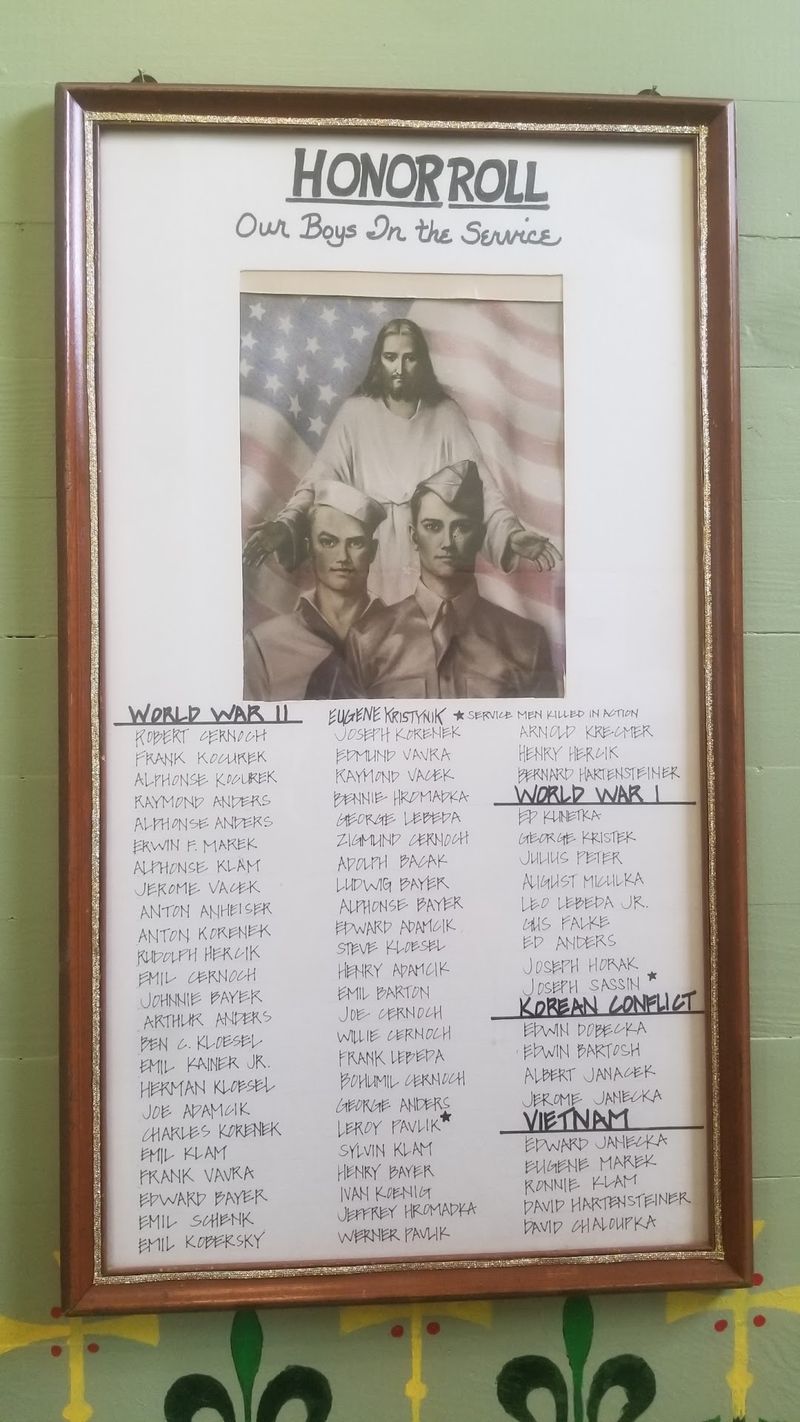 HONOR ROLL
Our Boys In the Service
WORLD WAR II
ROBERT CERNOCH
FRANK KOCUREK
ALPHONSE KOCUREK
RAYMOND ANDERS
ALPHONSE ANDERS
ERWIN F. MAREK
ALPHONSE KLAM
JEROME VACEK
ANTON ANHEISER
ANTON KORENEK
RUDOLPH HERCIK
EMIL CERNOCH
JOHNNIE BAYER
ARTHUR ANDERS
BEN C. KLOESEL
EMIL KAINER JR.
HERMAN KLOESEL
JOE ADAMCIK
CHARLES KORENEK
EMIL KLAM
FRANK VAVRA
EDWARD BAYER
EMIL SCHENK
EMIL KOBERSKY
EUGENE KRISTYNIK ★ SERVICE MEN KILLED IN ACTION
JOSEPH KORENEK
EDMUND VAVRA
RAYMOND VACEK
BENNIE HROMADKA
GEORGE LEBEDA
ZIGMUND CERNOCH
ADOLPH BACAK
LUDWIG BAYER
ALPHONSE BAYER
EDWARD ADAMCIK
STEVE KLOESEL
HENRY ADAMCIK
EMIL BARTON
JOE CERNOCH
WILLIE CERNOCH
FRANK LEBEDA
BOHUMIL CERNOCH
GEORGE ANDERS
LEROY PAVLIK ★
SYLVIN KLAM
HENRY BAYER
IVAN KOENIG
JEFFREY HROMADKA
WERNER PAVLIK
ARNOLD KRECMER
HENRY HERCIK
BERNARD HARTENSTEINER
WORLD WAR I
ED KUNETKA
GEORGE KRISTEK
JULIUS PETER
AUGUST MICULKA
LEO LEBEDA JR.
GUS FALKE
ED ANDERS
JOSEPH HORAK
JOSEPH SASSIN ★
KOREAN CONFLICT
EDWIN DOBECKA
EDWIN BARTOSH
ALBERT JANACEK
JEROME JANECKA
VIETNAM
EDWARD JANECKA
EUGENE MAREK
RONNIE KLAM
DAVID HARTENSTEINER
DAVID CHALOUPKA